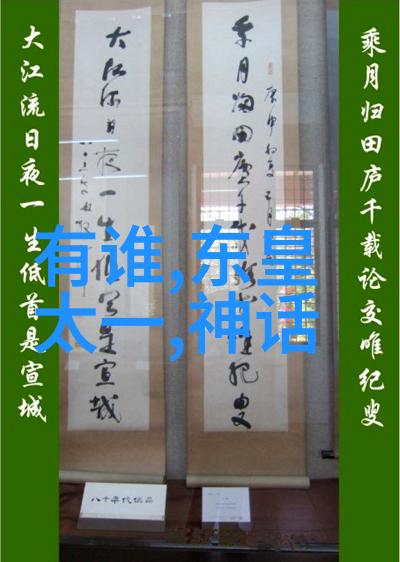 乘月归田庐千载论交唯纪叟
乘月归田庐千
纪叟
庚申初夏
大江流日夜一生
是宣城
大江流日夜一生低首是宣城
有谁,东皇
太一,神话
八十年代作品